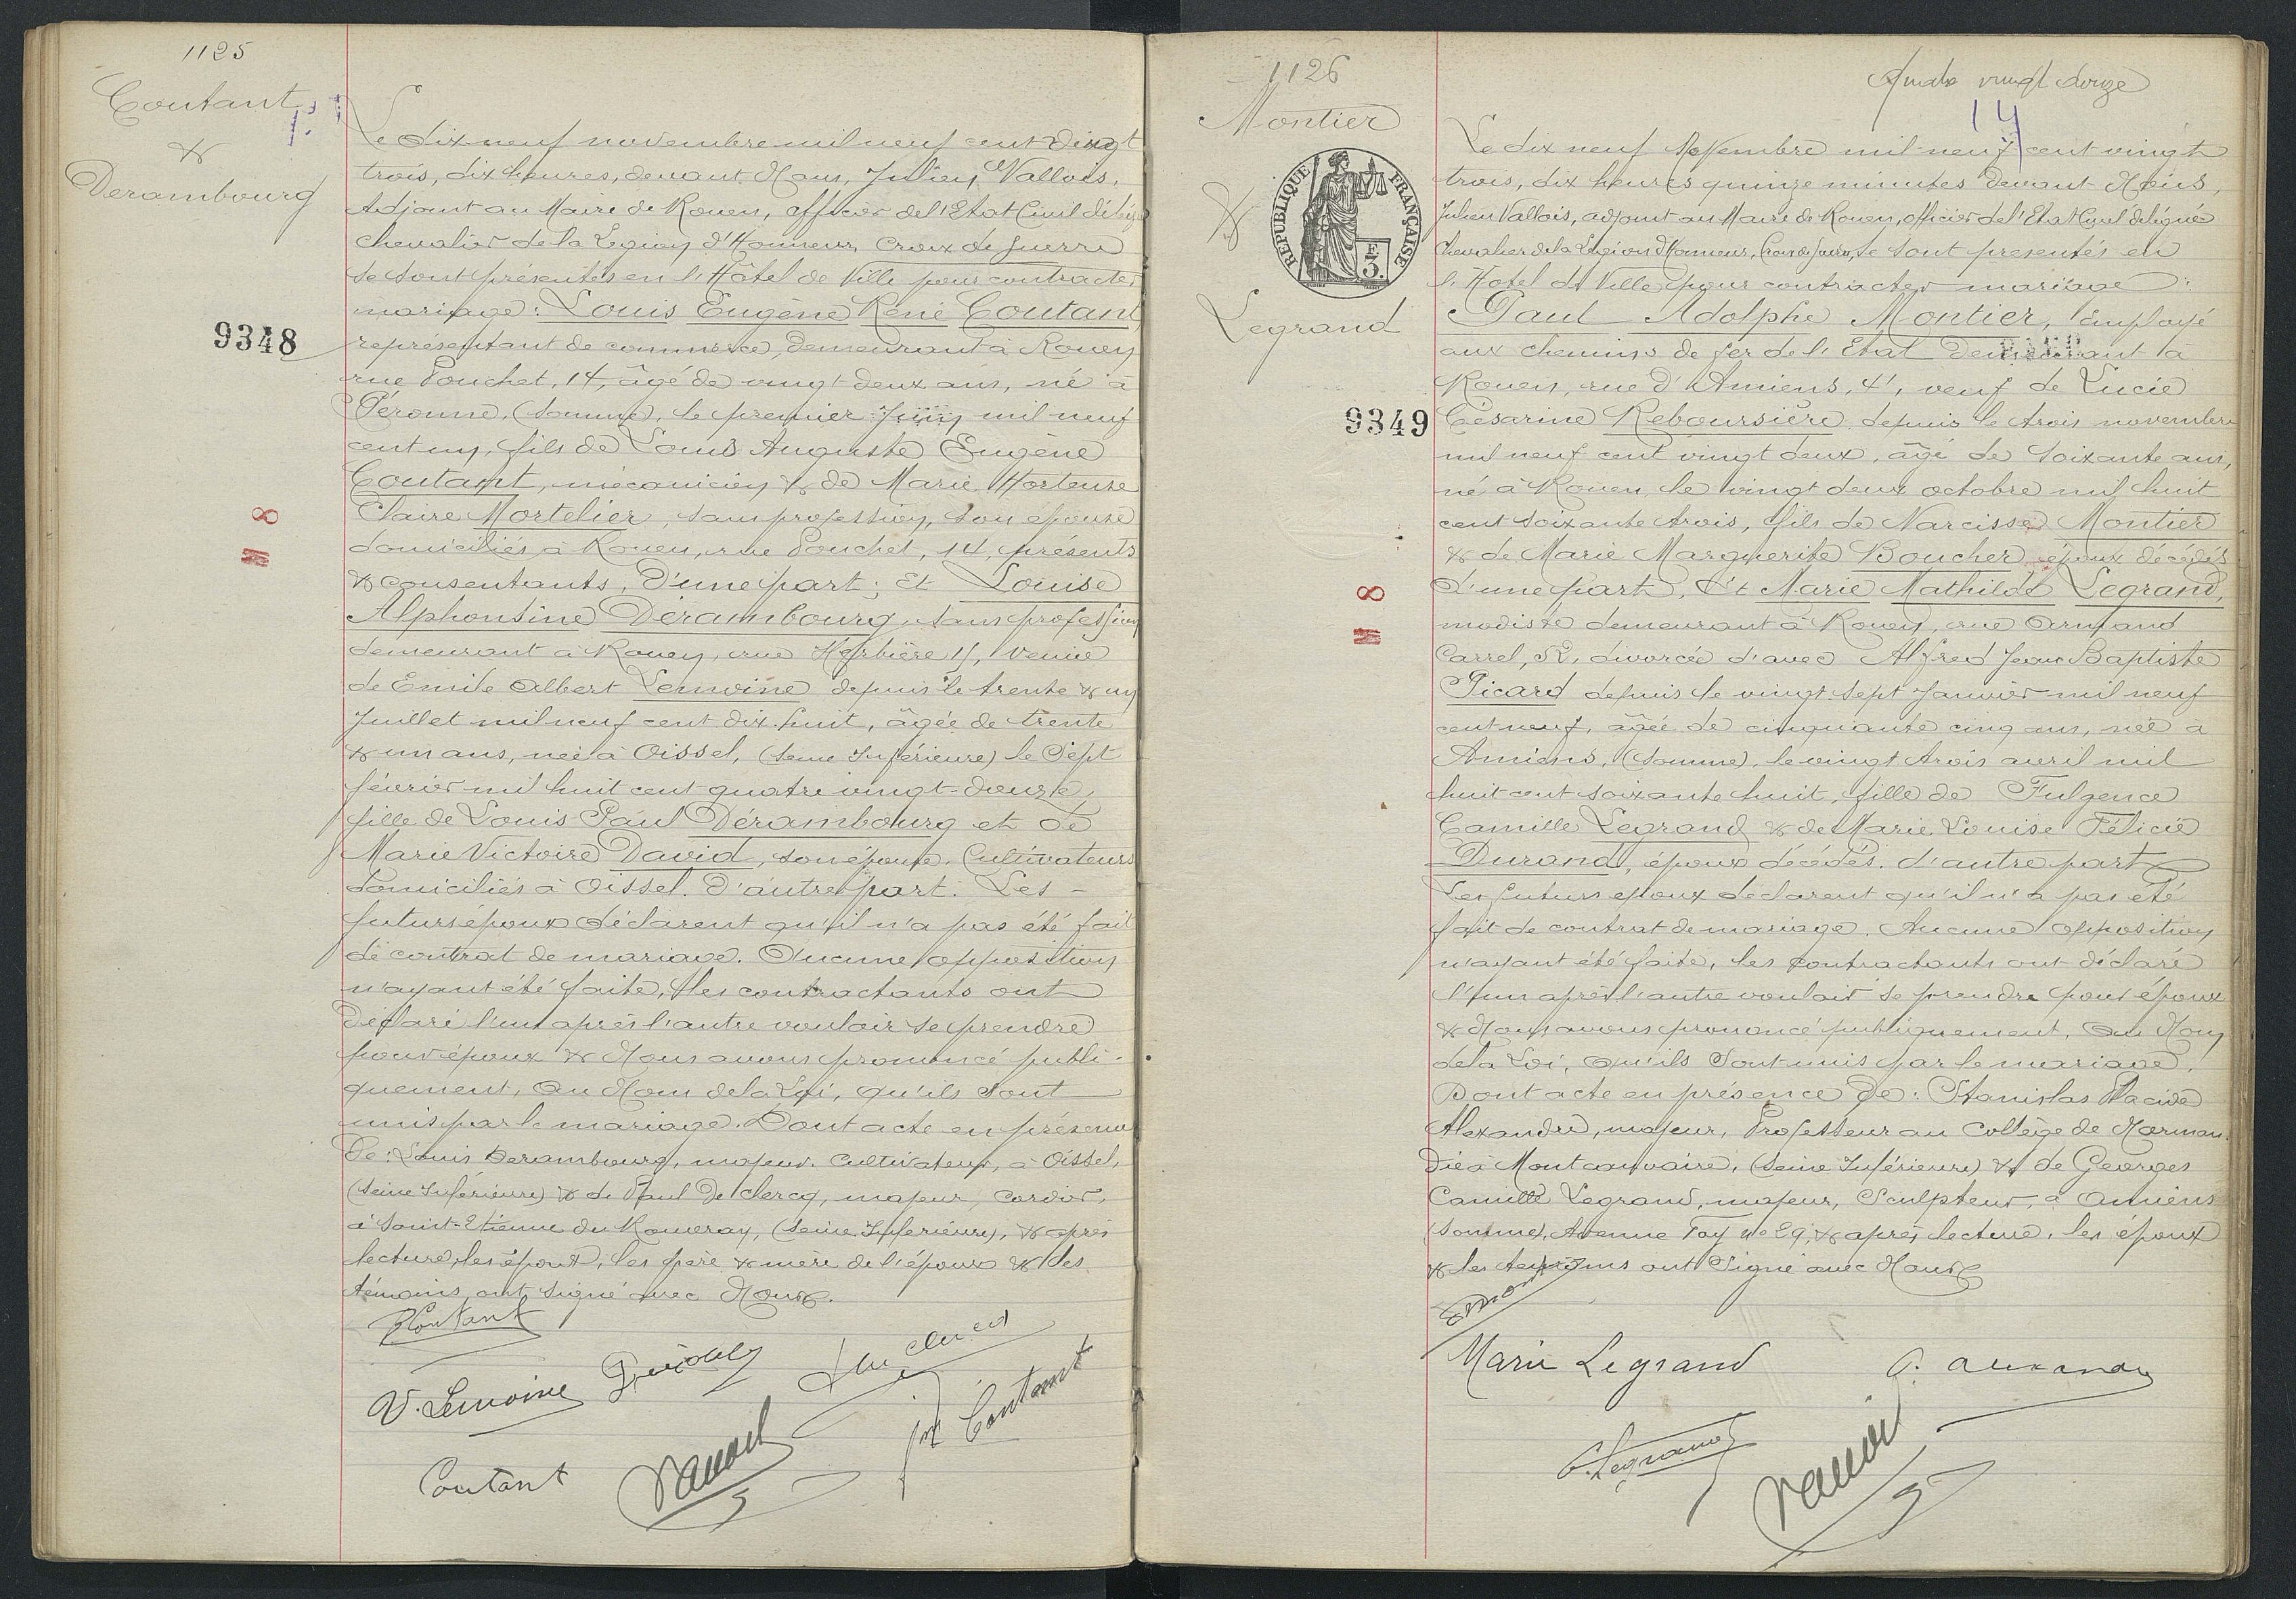 1125
Coutant
&
Derambourg
9348
8
Le dix-neuf novembre mil neuf cent vingt
trois, dix heures, devant Nous, Julien Vallois,
Adjoint au Maire de Rouen, officier de l'Etat Civil délégué
chevalier de la Légion d'Honneur, Croix de guerre
se sont présentés en l'Hôtel de Ville pour contracter
mariage : Louis Eugène René Coutant,
représentant de commerce, demeurant à Rouen
rue Pouchet, 14, âgé de vingt deux ans, né à
Péronne, (Somme), le premier Juin mil neuf
cent un, fils de Louis Auguste Eugène
Coutant, mécanicien & de Marie Hortense
Claire Mortelier, sans profession, son épouse
domiciliés à Rouen, rue Pouchet, 14, présents
& consentants, d'une part ; Et Louise
Alphonsine Dérambourg, sans profession
demeurant à Rouen, rue Herbière 11, veuve
de Emile Albert Lemoine depuis le trente & un
Juillet mil neuf cent dix huit, âgée de trente
& un ans, née à Oissel, (Seine Inférieure) le Sept
février mil huit cent quatre vingt-douze,
fille de Louis Paul Dérambourg et de
Marie Victoire David, son épouse, Cultivateurs
domiciliés à Oissel. D'autre part. Les -
futurs époux déclarent qu'il n'a pas été fait
de contrat de mariage. Aucune opposition
n'ayant été faite, les contractants ont
déclaré l'un après l'autre vouloir se prendre
pour époux & Nous avons prononcé publi-
quement, Au Nom de la Loi, qu'ils sont
unis par le mariage. Dont acte en présence
de : Louis Derambourg, majeur, Cultivateur, à Oissel,
(Seine Inférieure) & de Paul De clercq, majeur, Cordier,
à Saint-Etienne du Rouvray, (Seine Inférieure), & après
lecture, les époux, les père & mère de l'époux & les
témoins, ont signé avec Nous.
RCoutant
V. Lemoine
Coutant
M Coutant
1126
Montier
&
Legrand
RÉPUBLIQUE FRANÇAISE
F
3.
9349
8
Quatre vingt douze
14
Le dix neuf Novembre mil neuf cent vingt
trois, dix heures quinze minutes devant Nous,
Julien Vallois, adjoint au Maire de Rouen, officier de l'Etat Civil délégué
Chevalier de la Légion d'Honneur, Croix de guerre, se sont présentés en
l'Hôtel de Ville pour contracter mariage :
Paul Adolphe Montier, employé
aux chemins de fer de l'Etat demeurant à
Rouen, rue d'Amiens, 41, veuf de Lucie
Césarine Reboursière, depuis le trois novembre
mil neuf cent vingt deux, âgé de soixante ans,
né à Rouen, le vingt deux octobre mil huit
cent soixante trois, fils de Narcisse Montier
& de Marie Marguerite Boucher époux décédés
d'une part, Et Marie Mathilde Legrand,
modiste demeurant à Rouen, rue Armand
Carrel, divorcée d'avec Alfred Jean Baptiste
Picard depuis le vingt sept Janvier mil neuf
cent neuf, âgée de cinquante cinq ans, née à
Amiens, (Somme), le vingt trois avril mil
huit cent soixante huit, fille de Fulgence
Camille Legrand & de Marie Louise Félicie
Durand, époux décédés. d'autre part
Les futurs époux déclarent qu'il n'a pas été
fait de contrat de mariage. Aucune opposition
n'ayant été faite, les contractants ont déclaré
l'un après l'autre vouloir se prendre pour époux
& Nous avons prononcé publiquement, Au Nom
de la Loi, qu'ils sont unis par le mariage.
Dont acte en présence de : Stanislas Placide
Alexandre, majeur, Professeur au Collège de Norman-
die à Montcauvaire, (Seine Inférieure) & de Georges
Camille Legrand, majeur, Sculpteur, à Amiens
(Somme), Avenue Foy no 29, & après lecture, les époux
& les témoins ont signé avec Nous
Marie Legrand
G. Legrand